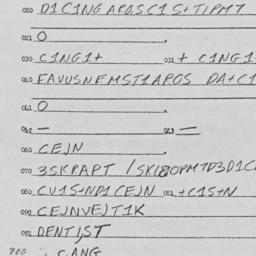 020 D1C1NG AROSC1S+TIPM7
021 O
030 C1NG1+ 031 + C1NG1
040 EAVUSNFMST1AROS DA+C1
041 O
042 — 043 —
060 CEJN
070 3SKPAPT /SK180PM7D3D1C
080 CV1S+ND1CEJN 081 +C1S+N
090 CEJNVEJT1K
091 DENTIST
CANG